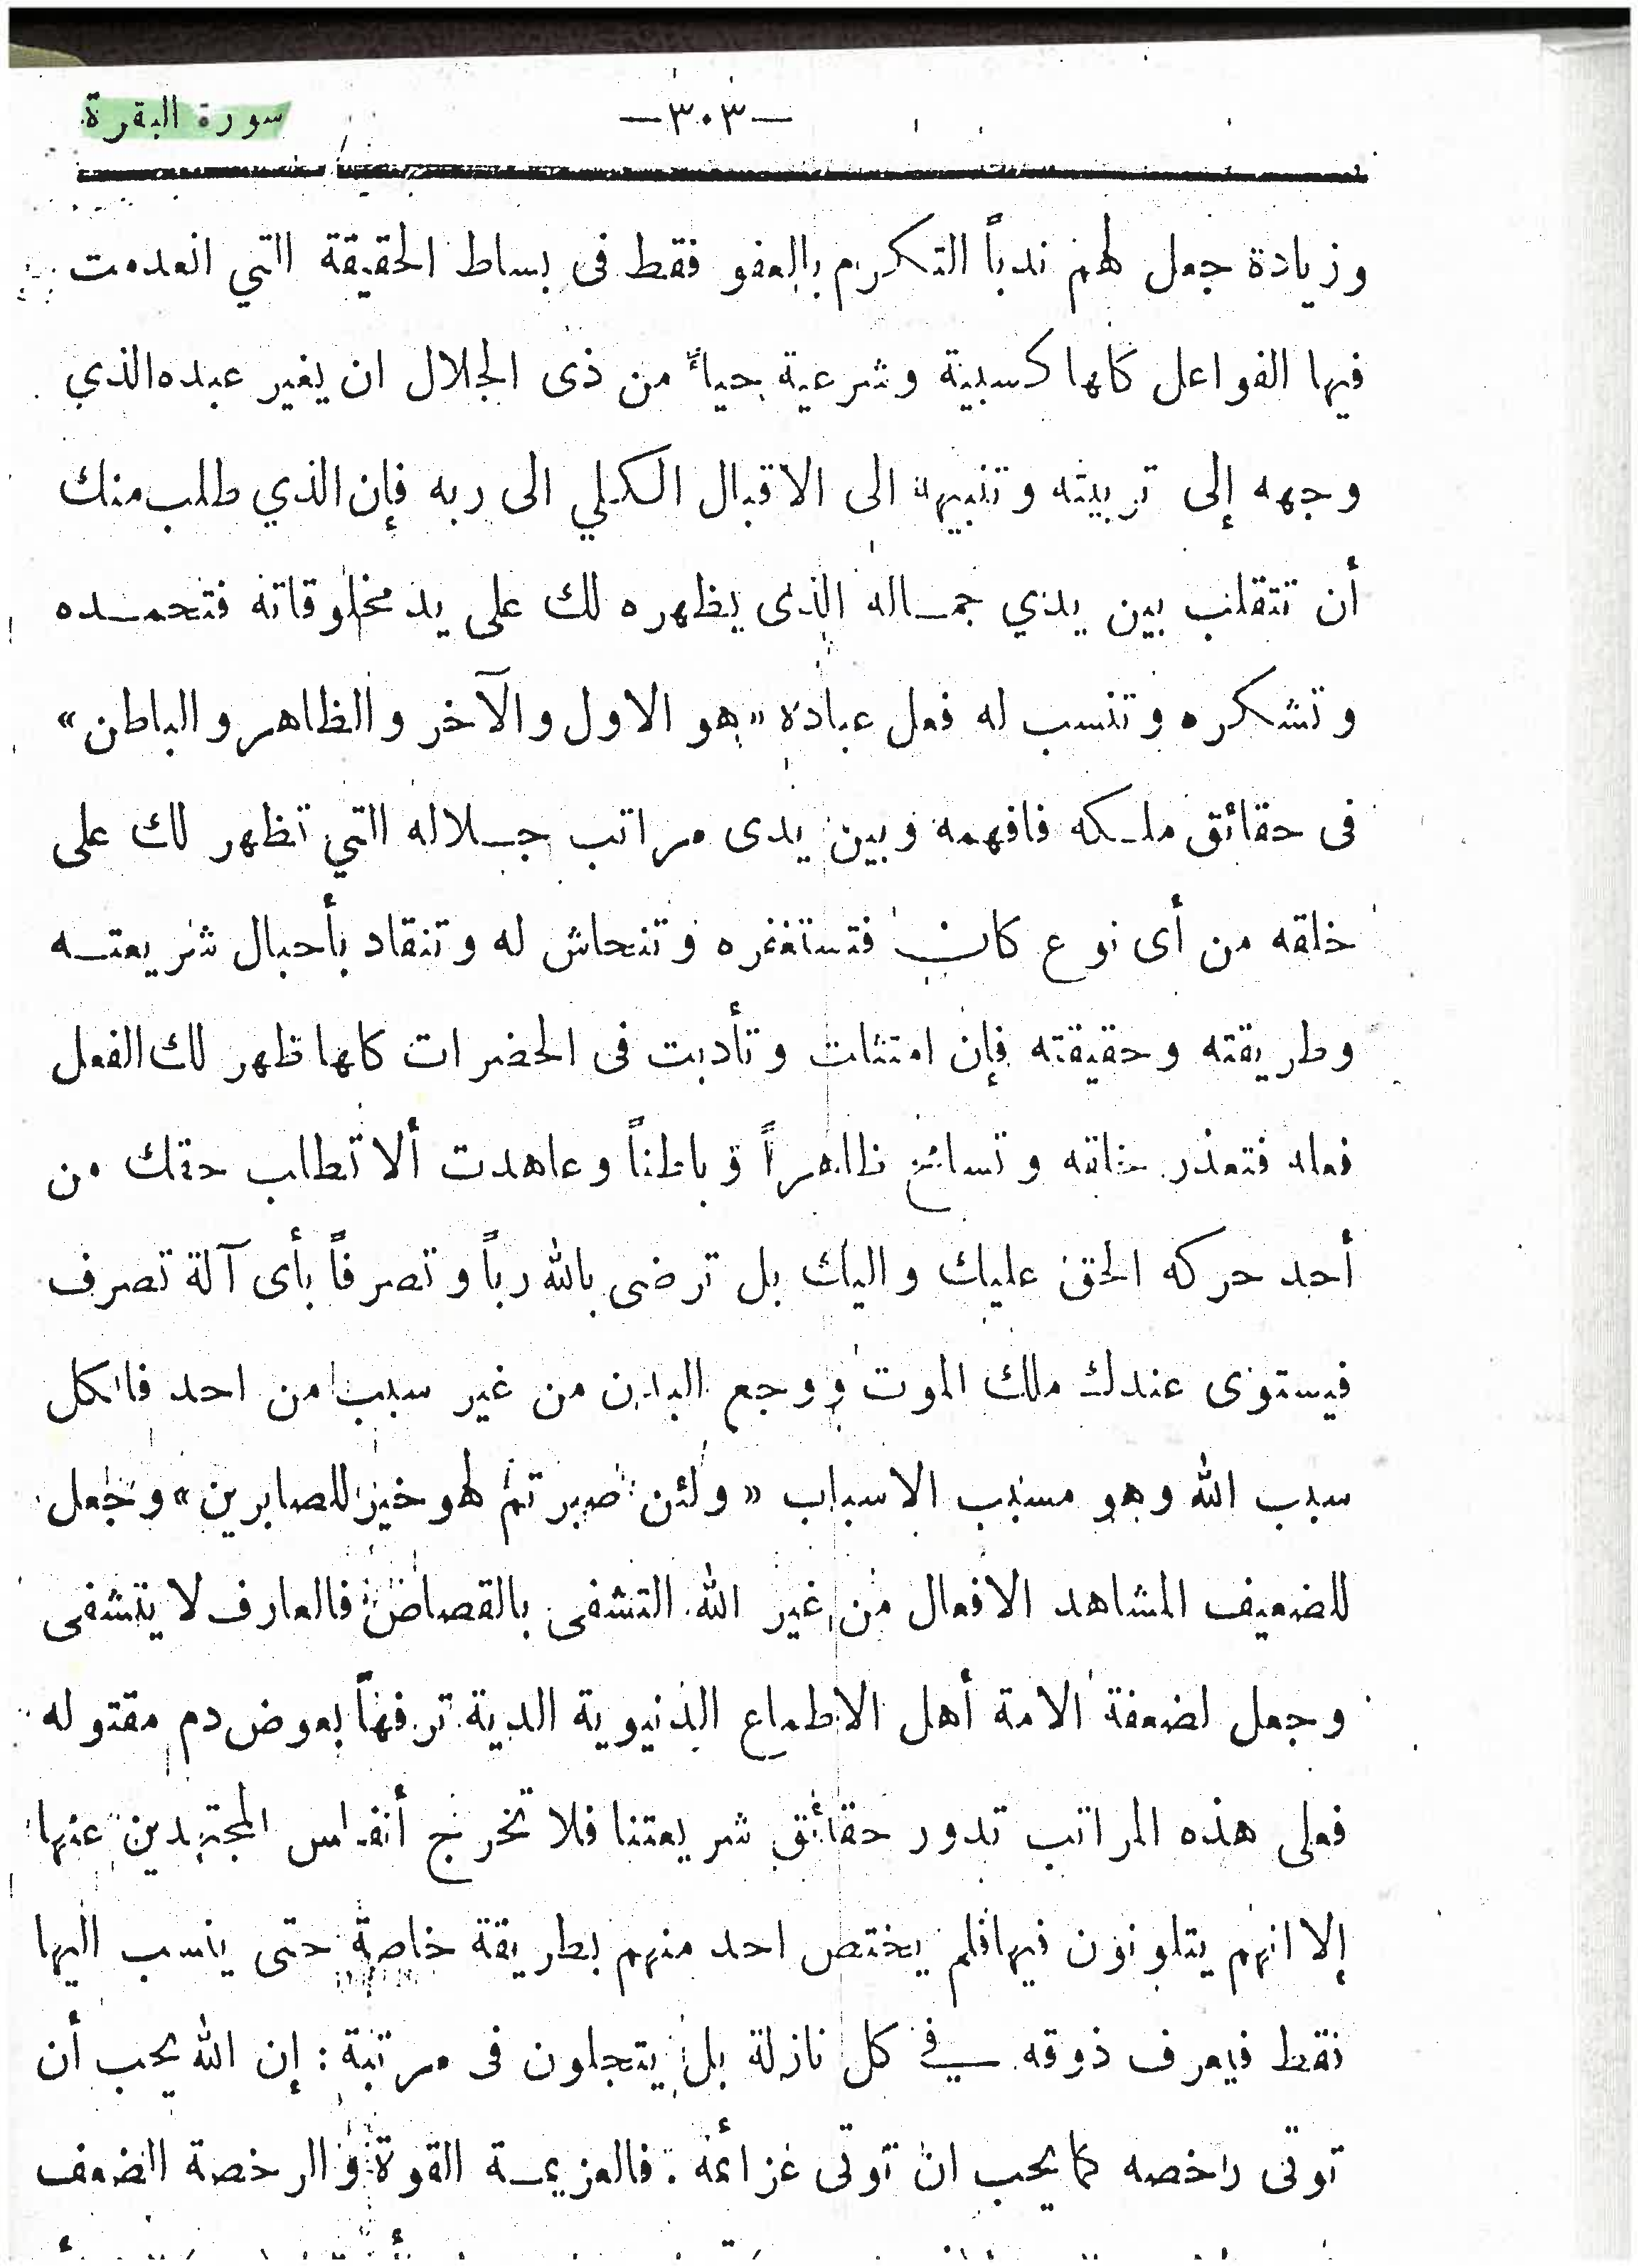 سورة البقرة
—٣٠٣—
وزيادة جعل لهم ندباً التكرم بالعفو فقط فى بساط الحقيقة التي انعدمت
فيها الفواعل كلها كسبية وشرعية حياءً من ذى الجلال ان يغير عبده الذي
وجهه إلى تربيته وتنبيهه الى الاقبال الكلي الى ربه فإن الذي طلب منك
أن تتقلب بين يدي جماله الذى يظهره لك على يد مخلوقاته فتحمده
وتشكره وتنسب له فعل عباده «هو الاول والآخر والظاهر والباطن»
فى حقائق ملكه فافهمه وبين يدى مراتب جلاله التي تظهر لك على
خلقه من أى نوع كان فتستغفره وتنحاش له وتنقاد بأحبال شريعته
وطريقته وحقيقته فإن امتثلت وتأدبت فى الحضرات كلها ظهر لك الفعل
فعله فتعذر خلقه وتسامح ظاهراً وباطناً وعاهدت ألا تطلب حقك من
أحد حركه الحق عليك واليك بل ترضى بالله رباً وتصرفاً بأى آلة تصرف
فيستوى عندك ملك الموت ووجع البدن من غير سبب من احد فالكل
سبب الله وهو مسبب الاسباب «ولئن صبرتم لهو خير للصابرين» وجعل
للضعيف المشاهد الافعال من غير الله التشفى بالقصاص فالعارف لا يتشفى
وجعل لضعفة الامة أهل الاطماع الدنيوية الدية ترفهاً بعوض دم مقتوله
فعلى هذه المراتب تدور حقائق شريعتنا فلا تخرج أنفاس المجتهدين عنها
إلا انهم يتلونون فيها فلم يختص احد منهم بطريقة خاصة حتى ينسب اليها
فقط فيعرف ذوقه في كل نازلة بل يتجلون فى مرتبة : إن الله يحب أن
تؤتى رخصه كما يحب ان تؤتى عزائمه . فالعزيمة القوة والرخصة الضعف